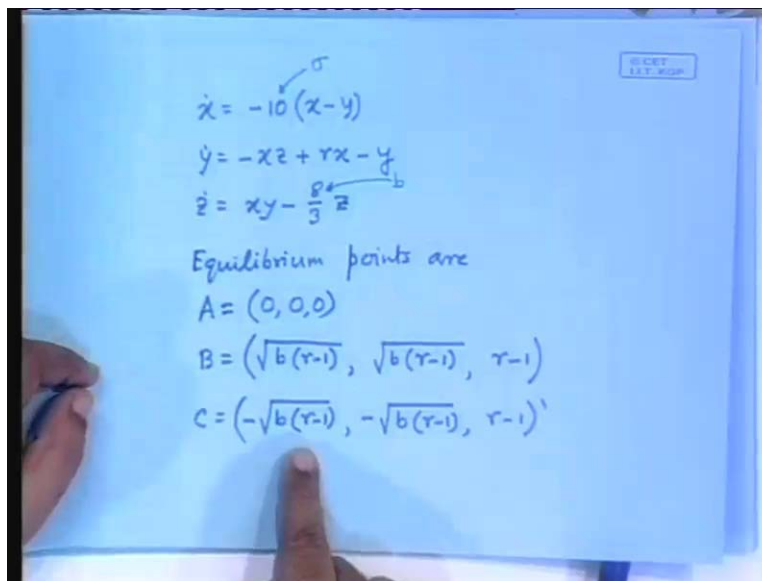 © CET
I.I.T. KGP
σ
ẋ = -10 (x-y)
ẏ = -xz + rx - y
b
ż = xy - 8/3 z
Equilibrium points are
A = (0, 0, 0)
B = (√b(r-1), √b(r-1), r-1)
C = (-√b(r-1), -√b(r-1), r-1)